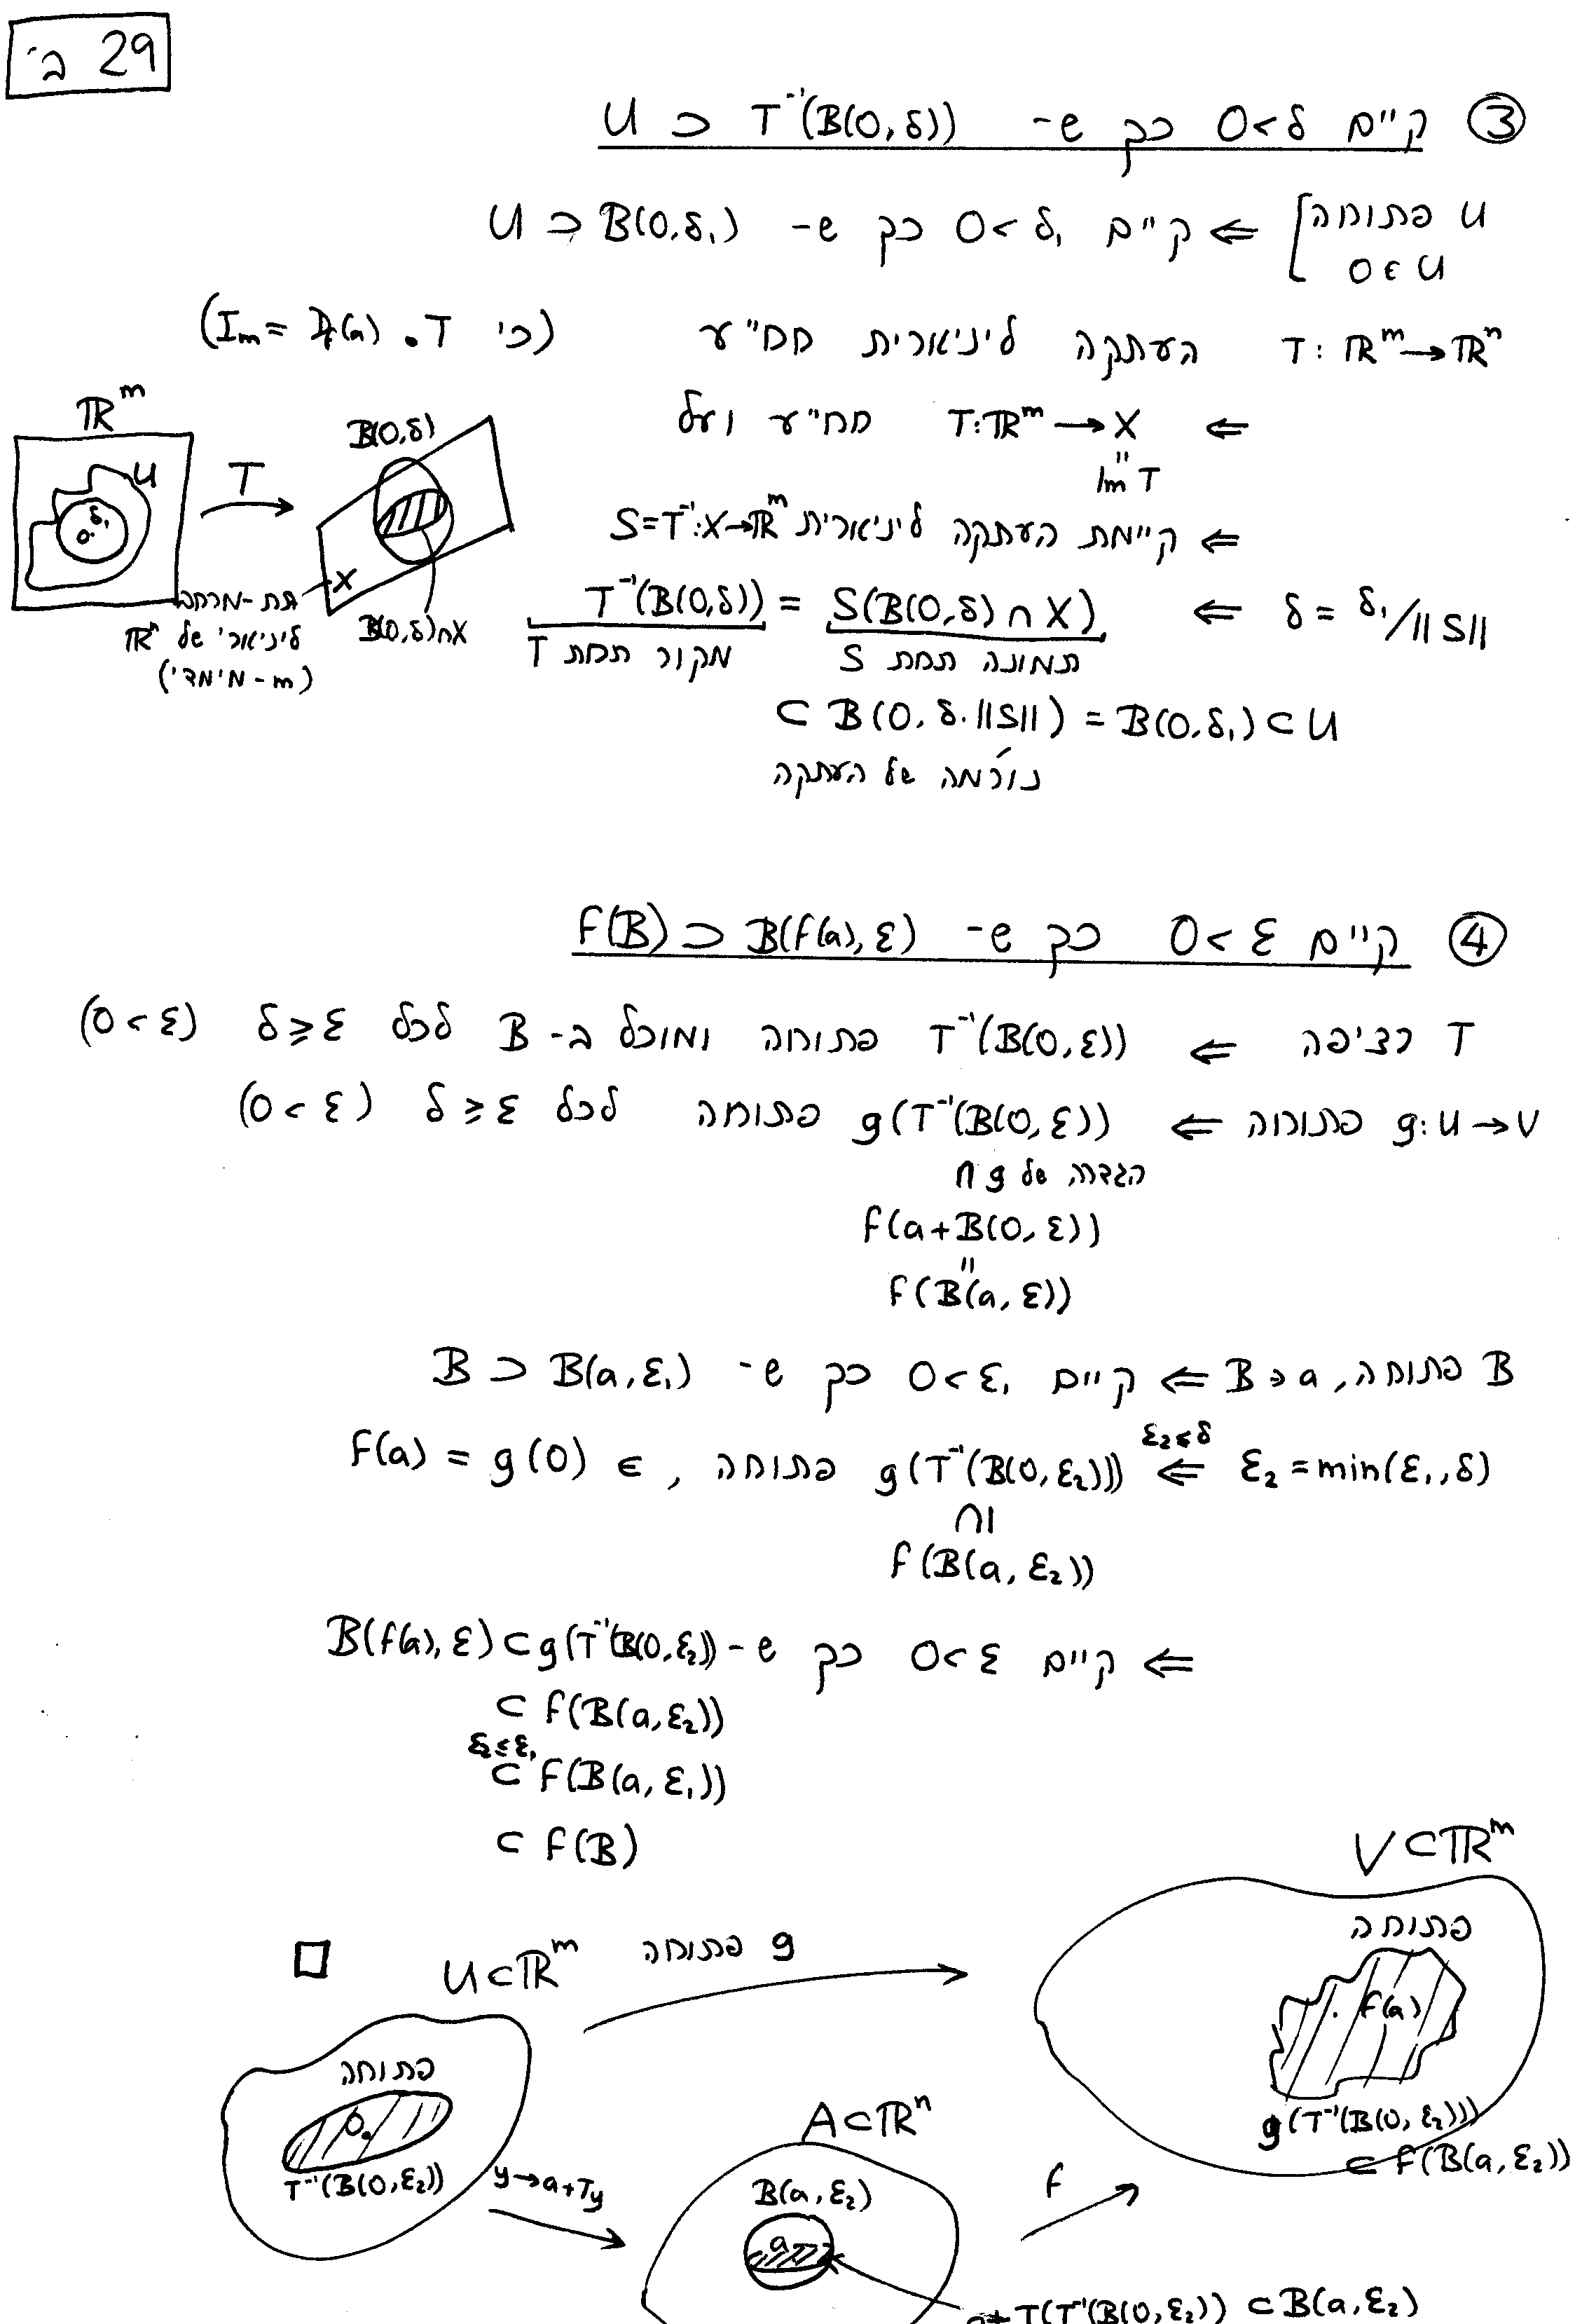 29 ב'
③ קיים 0<δ כך ש- U ⊃ T⁻¹(B(0,δ))
[U פתוחה ⇐ קיים 0<δ₁ כך ש- U ⊃ B(0,δ₁)
0∈U
T: ℝᵐ→ℝⁿ העתקה ליניארית חח"ע (כי I_m = Df(a)·T)
⇐ T:ℝᵐ→X חח"ע ועל
"
Im T
⇐ קיימת העתקה ליניארית S=T⁻¹:X→ℝᵐ
δ = δ₁/‖S‖ ⇐ T⁻¹(B(0,δ)) = S(B(0,δ)∩X)
מקור תחת T
תמונה תחת S
⊂ B(0,δ·‖S‖) = B(0,δ₁) ⊂ U
נורמה של העתקה
ℝᵐ
U
δ₁
0
T
B(0,δ)
X
B(0,δ)∩X
תת-מרחב
ליניארי של ℝⁿ
(m-מימדי)
④ קיים 0<ε כך ש- f(B) ⊃ B(f(a),ε)
T רציפה ⇐ T⁻¹(B(0,ε)) פתוחה ומוכל ב-B לכל δ≥ε (0<ε)
g:U→V פתוחה ⇐ g(T⁻¹(B(0,ε))) פתוחה לכל δ≥ε (0<ε)
∩ הגדרה של g
f(a+B(0,ε))
"
f(B(a,ε))
B פתוחה, B∋a ⇐ קיים 0<ε₁ כך ש- B ⊃ B(a,ε₁)
ε₂=min(ε₁,δ) ⇐ ε₂≤δ g(T⁻¹(B(0,ε₂))) פתוחה, f(a) = g(0) ∈
∩
f(B(a,ε₂))
⇐ קיים 0<ε כך ש- B(f(a),ε)⊂g(T⁻¹(B(0,ε₂))
⊂ f(B(a,ε₂))
ε₂≤ε₁
⊂ f(B(a,ε₁))
⊂ f(B)
V⊂ℝᵐ
פתוחה
f(a)
g(T⁻¹(B(0,ε₂)))
⊂ f(B(a,ε₂))
U⊂ℝᵐ
g פתוחה
פתוחה
0
T⁻¹(B(0,ε₂))
y→a+Ty
A⊂ℝⁿ
B(a,ε₂)
a
f
a+T(T⁻¹(B(0,ε₂)) ⊂B(a,ε₂)